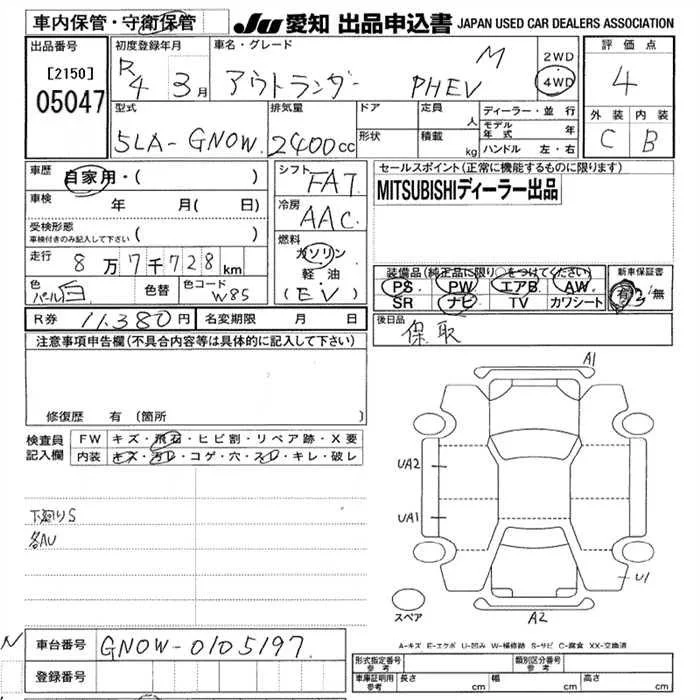 車内保管・守衛保管
JU 愛知 出品申込書 JAPAN USED CAR DEALERS ASSOCIATION
出品番号
[2150]
05047
初度登録年月
R4 3月
車名・グレード
アウトランダー PHEV M
2WD
4WD
評価点
4
外装 内装
C B
型式
5LA-GN0W
排気量
2400cc
ドア
形状
定員 人
積載 kg
ディーラー・並行
モデル年式 年
ハンドル 左・右
車歴
自家用・( )
車検 年 月( 日)
受検形態
車検付きのみ記入して下さい ( )
走行 8万7千728km
色
パール白
色替
色コード
W85
シフト
FA7
冷房
AAC
燃料
ガソリン
軽油
(EV)
セールスポイント(正常に機能するものに限ります)
MITSUBISHIディーラー出品
装備品(純正品に限り○をつけてください)
PS PW エアB AW
SR ナビ TV カワシート
新車保証書
有 無
R券 11,380円
名変期限 月 日
後日品
保取
注意事項申告欄(不具合内容等は具体的に記入して下さい)
修復歴 有(箇所 )
検査員記入欄
FW キズ・飛石・ヒビ割・リペア跡・X要
内装 キズ・汚レ・コゲ・穴・スレ・キレ・破レ
下廻りS
各AU
A1
UA2
UA1
U1
A2
スペア
A-キズ E-エクボ U-凹み W-補修跡 S-サビ C-腐食 XX-交換済
N
車台番号 GN0W-0105197
登録番号
形式指定番号 参考
類別区分番号 参考
車庫証明用 参考 長さ cm 幅 cm 高さ cm